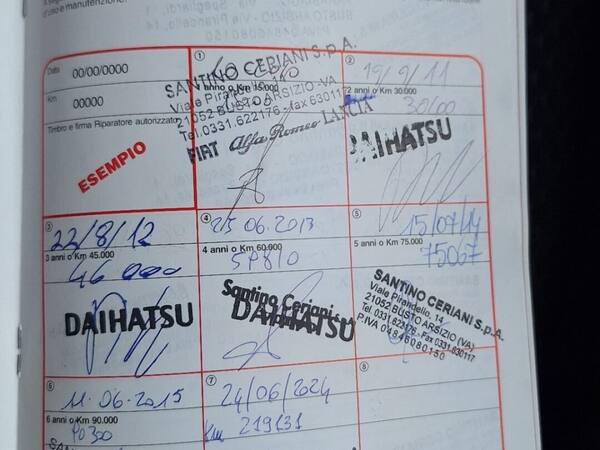 d'uso e manutenzione.
BUSTO ARSIZIO
Data
00/00/0000
Km
00000
Timbro e firma Riparatore autorizzato
ESEMPIO
①
1 anno o Km 15.000
SANTINO CERIANI S.p.A.
Viale Pirandello
21052 BUSTO ARSIZIO-VA
Tel.0331.622176 - fax 630117
FIAT Alfa Romeo LANCIA
②
19/9/11
2 anni o Km 30.000
30100
DAIHATSU
③
22/8/12
3 anni o Km 45.000
46 000
DAIHATSU
④
25 06.2013
4 anni o Km 60.000
Santino Ceriani
DAIHATSU
⑤
15/07/14
5 anni o Km 75.000
75067
SANTINO CERIANI S.p.A.
Viale Pirandello, 14
21052 BUSTO ARSIZIO (VA)
Tel. 0331.622176 - Fax 0331.630117
P.IVA 04846080150
⑥
11.06.2015
6 anni o Km 90.000
⑦
24/06/2024
Km 219131
⑧